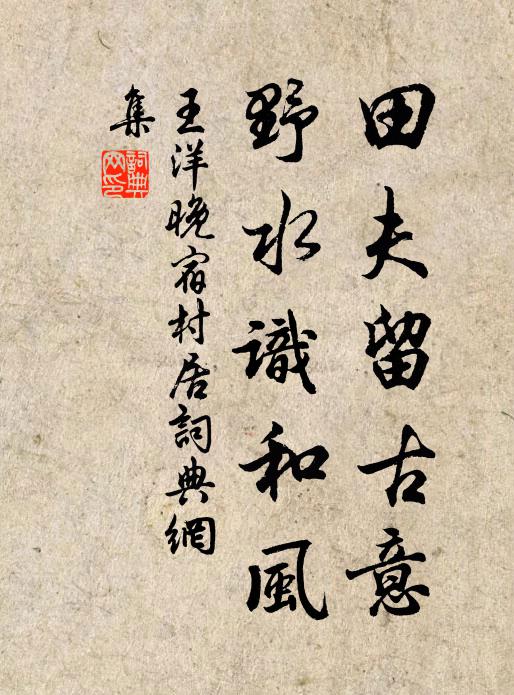 田夫留古意
野水識和風
王洋晚宿村居詞典網
集
詞典
網印